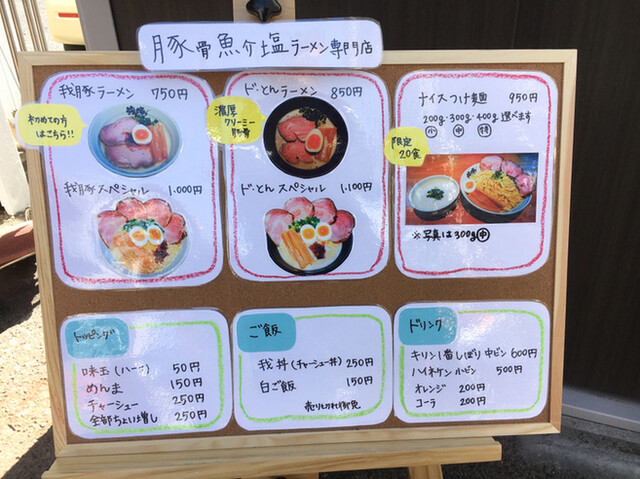 豚骨魚介塩ラーメン専門店
我豚ラーメン 750円
初めての方
はこちら!!
我豚スペシャル 1.000円
ド・とんラーメン 850円
濃厚
クリーミー
豚骨
ド・とんスペシャル 1.100円
ナイスつけ麺 950円
200g・300g・400g 選べます
小 中 特
限定
20食
※写真は300g中
トッピング
味玉(ハーフ) 50円
めんま 150円
チャーシュー 250円
全部ちょい増し 250円
ご飯
我丼(チャーシュー丼) 250円
白ご飯 150円
売り切れ御免
ドリンク
キリン1番しぼり中ビン 600円
ハイネケン小ビン 500円
オレンジ 200円
コーラ 200円